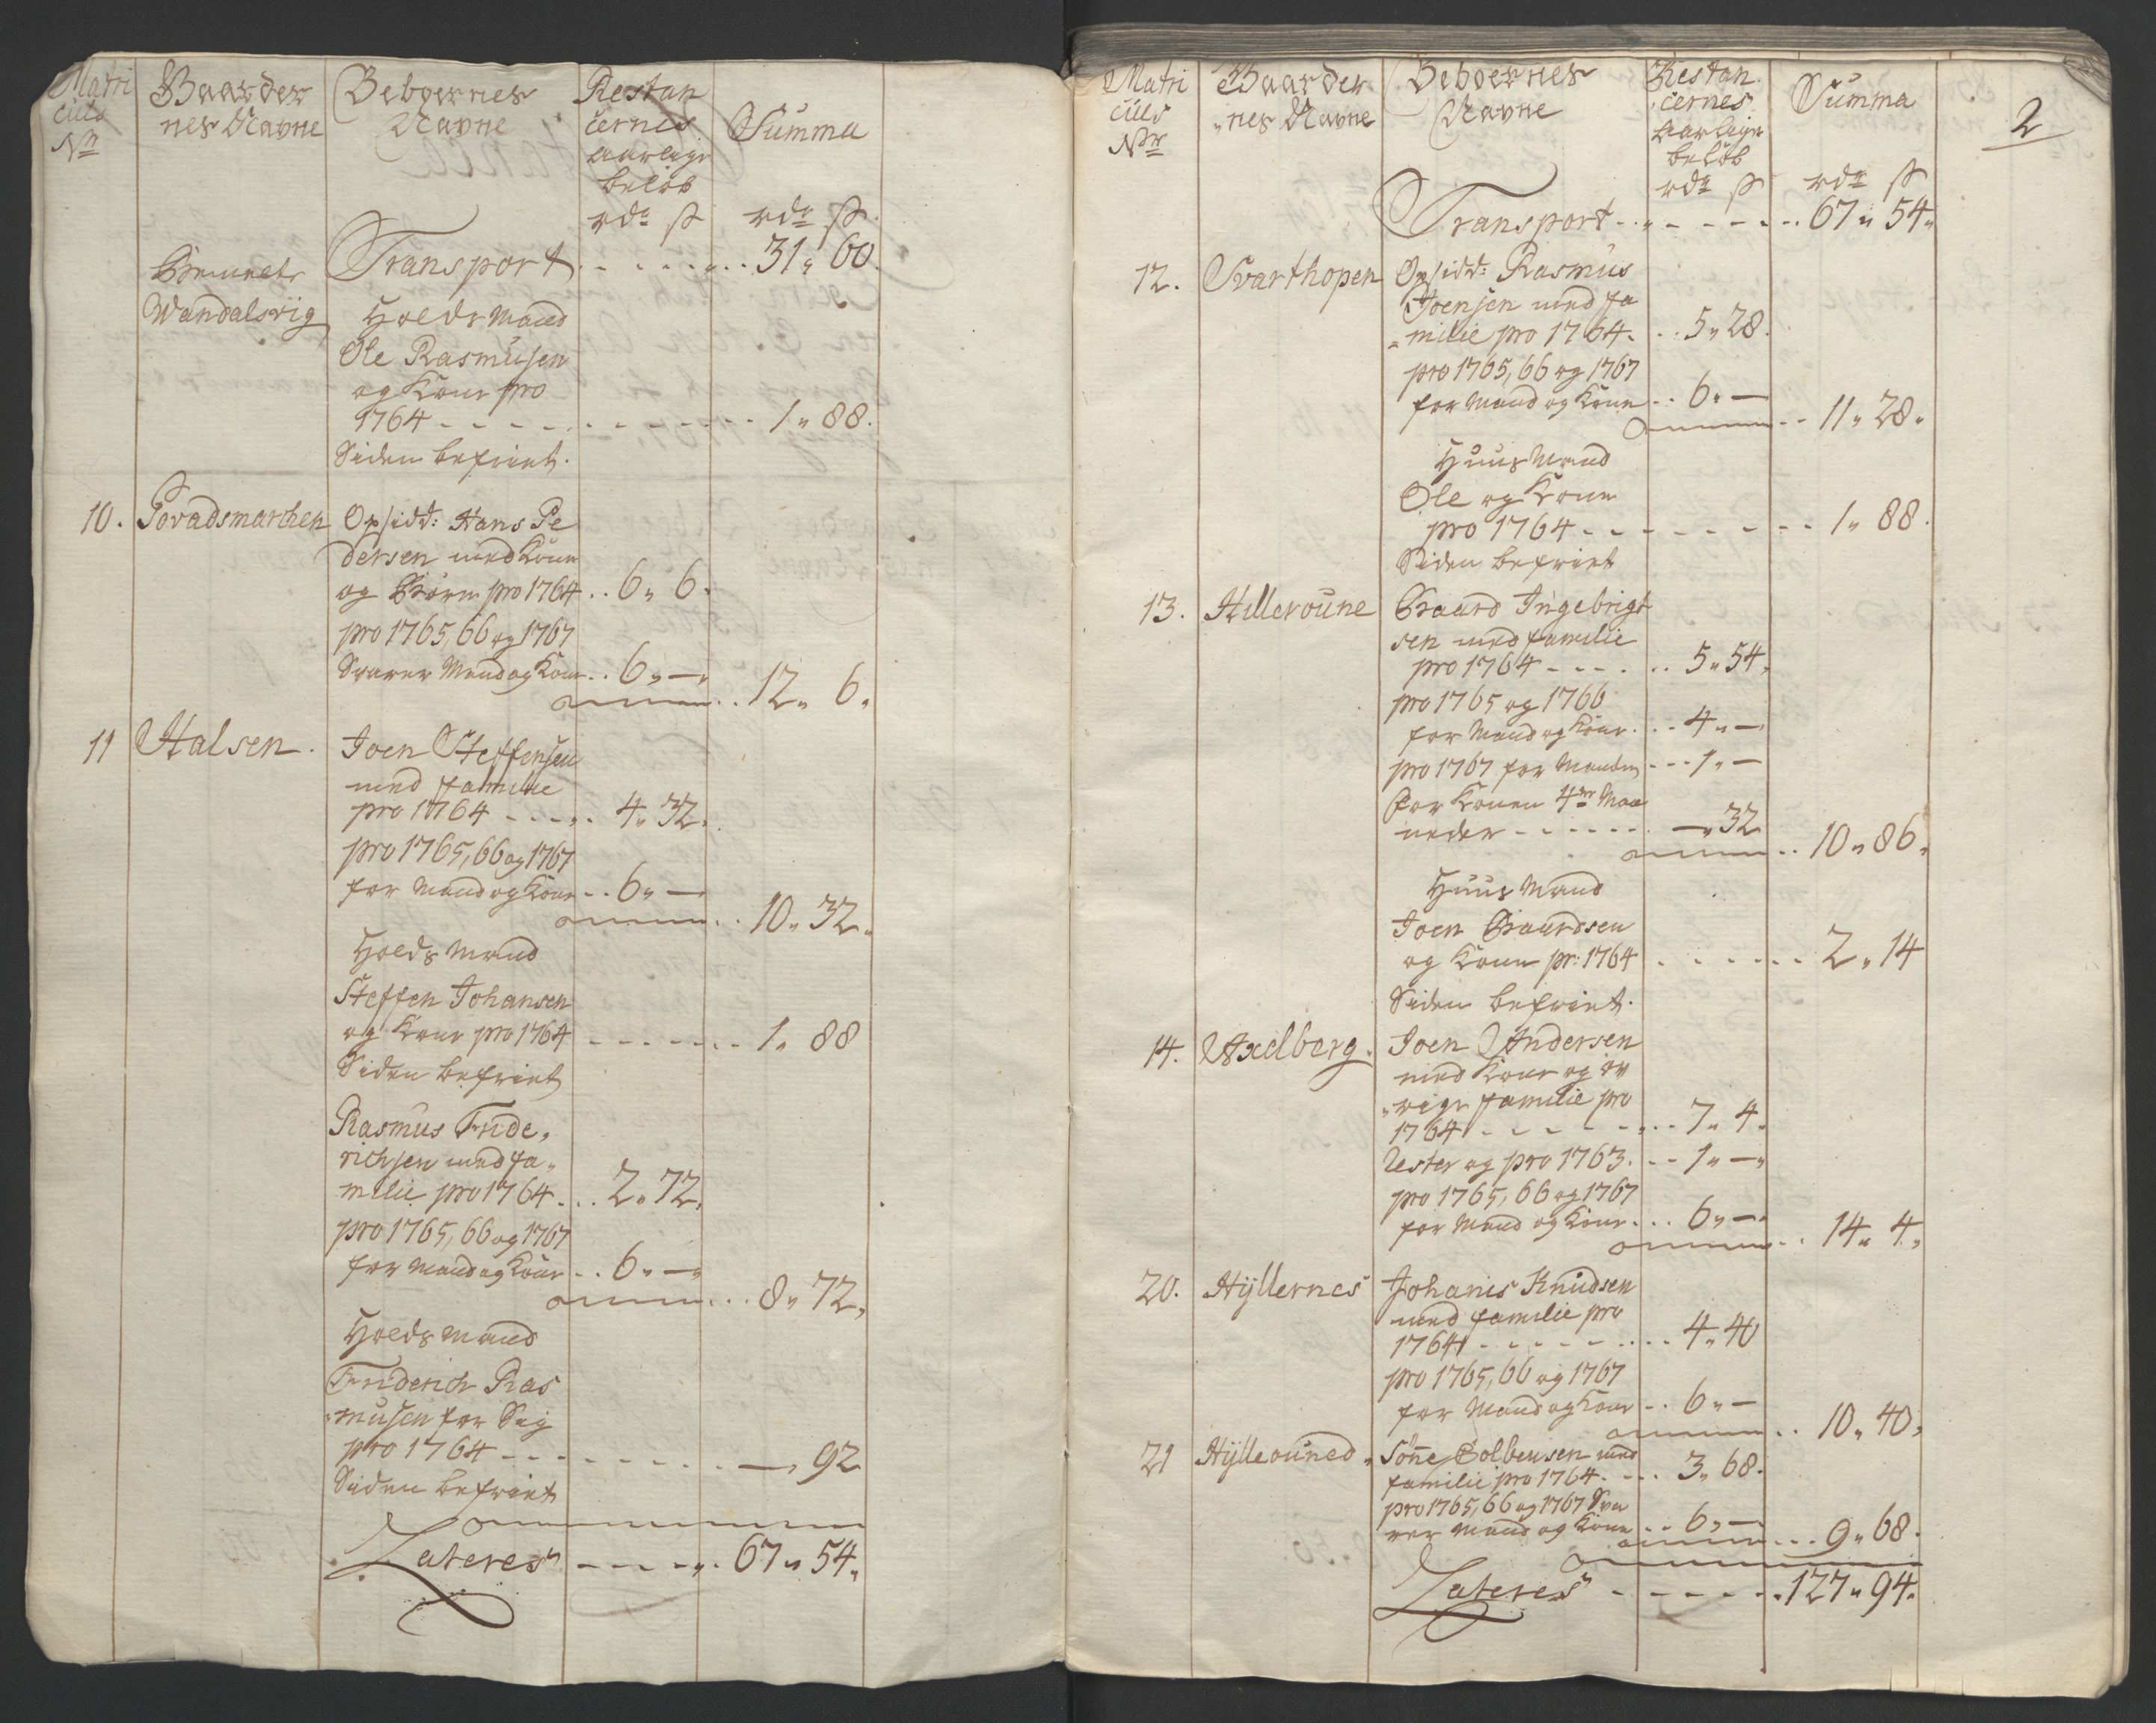 Matri
culs
Nr
Gaarder
nes Navne
Beboernes
Navne
Restan
cernes
aarlige
beløb
rdr ß
Summa
rdr ß
Transport - - - - - - - 31 " 60.
Wandalsviig
Holds Mand
Ole Rasmusen
og Kone pro
1764 - - - - - - - - - - 1 " 88.
Siden befriet.
10. Povadsmarchen
Opsidd: Hans Pe
dersen med Kone
og Børn pro 1764 . . 6 " 6.
pro 1765, 66 og 1767
Svarer Mand og Kone . . 6 " —
12 " 6 "
11 Halsen.
Joen Steffensen
med familie
pro 1764 - - - - . 4 " 32.
pro 1765, 66 og 1767
for Mand og Kone . . 6 " —
10 " 32 "
Holds Mand
Steffen Johansen
og Kone pro 1764 - - - - - - - 1 " 88
Siden befriet
Rasmus Fride "
richsen med fa "
milie pro 1764 . . . 2 " 72.
pro 1765, 66 og 1767
for Mand og Kone . . 6 " —
8 " 72 "
Holds Mand
Friderich Ras
" musen for Sig
pro 1764 - - - - - - - - — " 92
Siden befriet
Lateres - - - - - . 67 " 54 "
2
Matri
culs
Nr
Gaarder
" nes Navne
Beboernes
Navne
Restan
cernes
aarlige
beløb
rdr ß
Summa
rdr ß
Transport - - - - - - . . 67 " 54 "
12. Svarthopen
Opsidd: Rasmus
Joensen med fa
" milie pro 1764. . . 5 " 28.
pro 1765, 66 og 1767
for Mand og Kone . . 6 " —
11 " 28 "
Huus Mand
Ole og Kone
pro 1764 - - - - - - - - 1 " 88.
Siden befriet
13. Hilleroune
Baard Ingebrigt
sen med familie
pro 1764 - - - - . . 5 " 54 "
pro 1765 og 1766
for Mand og Kone . . . 4 " —
pro 1767 for Manden - - - 1 " —
for Konen 4er Maa
neder - - - - - - — " 32
10 " 86 "
Huus Mand
Joen Baardsen
og Kone pr: 1764 . . - - - . . 2 " 14
Siden befriet.
14. Axelberg.
Joen Andersen
med Kone og øv
" rige familie pro
1764 - - - - - - . . 7 " 4 "
Rester og pro 1763. - - 1 " — "
pro 1765, 66 og 1767
for Mand og Kone . . . 6 " —
14 " 4 "
20. Hÿllernes
Johanis Knudsen
med familie pro
1764 - - - - - - . . . 4 " 40
pro 1765, 66 og 1767
for Mand og Kone . . 6 " —
10 " 40 "
21 Hÿlleouned "
Sønne Colbensen med
familie pro 1764. - . . 3 " 68.
pro 1765, 66 og 1767 Sva
rer Mand og Kone . . 6 " —
9 " 68.
Lateres - - - - - - . 127 " 94 "